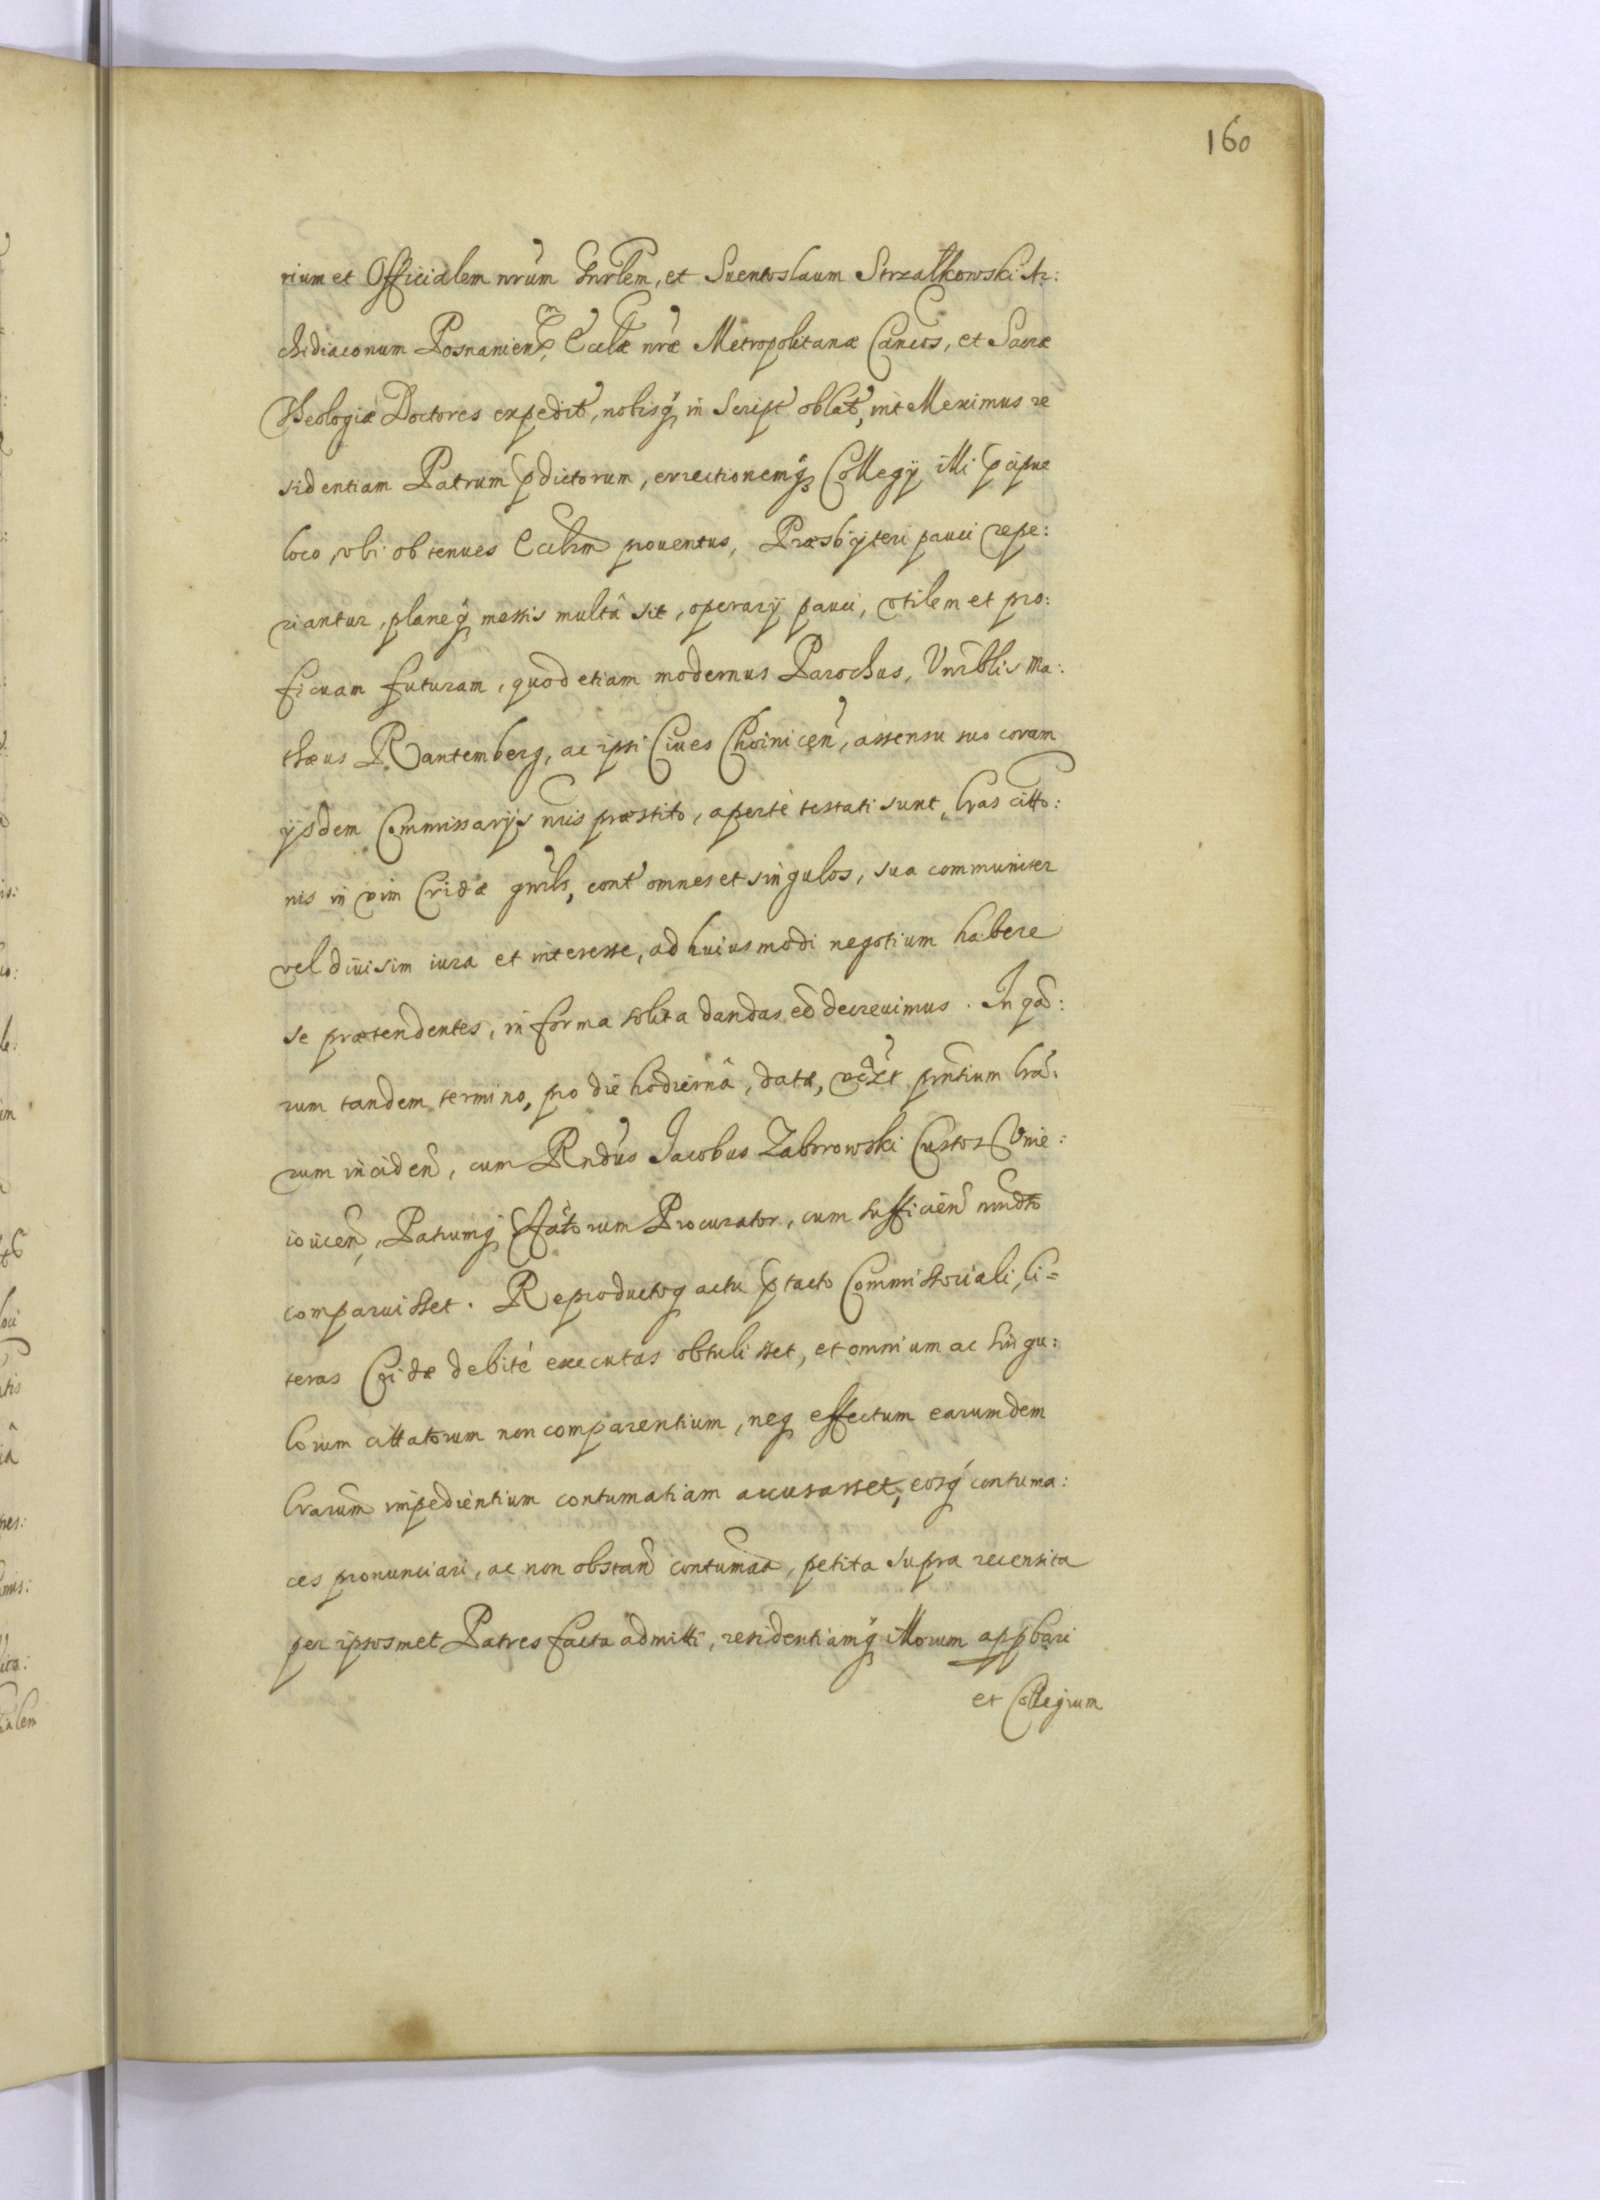 160
rium et Officialem nrũm Gnrlem, et Suentoslaum Strzałkowski Ar:
chidiaconum Posnanien, Ecclæ nræ Metropolitanæ Cancos, et Sacræ
Theologiæ Doctores expedit, nobisq in Script oblat, intelleximus re
sidentiam Patrum pdictorum, errectionemq Collegij illi pcipue
loco, vbi ob tenues Ecclrm prouentus, Præsbyteri pauci repe:
riantur, planeq messis multa sit, operarij pauci, vtilem et pro:
ficuam futuram, quod etiam modernus Parochus, Vnrblis Ma:
thæus Rantemberg, ac ipsi Ciues Choinicen, assensu suo coram
ijsdem Commissarijs nris præstito, aperté testati sunt, Lras citto:
nis in vim Cridæ gnrls, cont omnes et singulos, sua communiter
vel diuisim iura et interesse, ad huiusmodi negotium habere
se prætendentes, in forma solita dandas eẽ decreuimus. In quo:
rum tandem termino, pro die hodierna, datæ, vdzt pntium lrã:
rum inciden, cum Rndus Jacobus Zabrowski Custos Vnie:
iouicen, Patrumq Pfatorum Procurator, cum sufficien mndto
comparuisset. Reproductoq actu ptacto Commissoriali, li=
teras Cridæ debité executas obtulisset, et omnium ac singu:
lorum cittatorum non comparentium, neq effectum earumdem
Lrarum impedientium contumatiam accusasset, eosq contuma:
ces pronunciari, ac non obstan contumaa, petita supra recensita
per ipsosmet Patres facta admitti, residentiamq illorum appbari
et Collegium